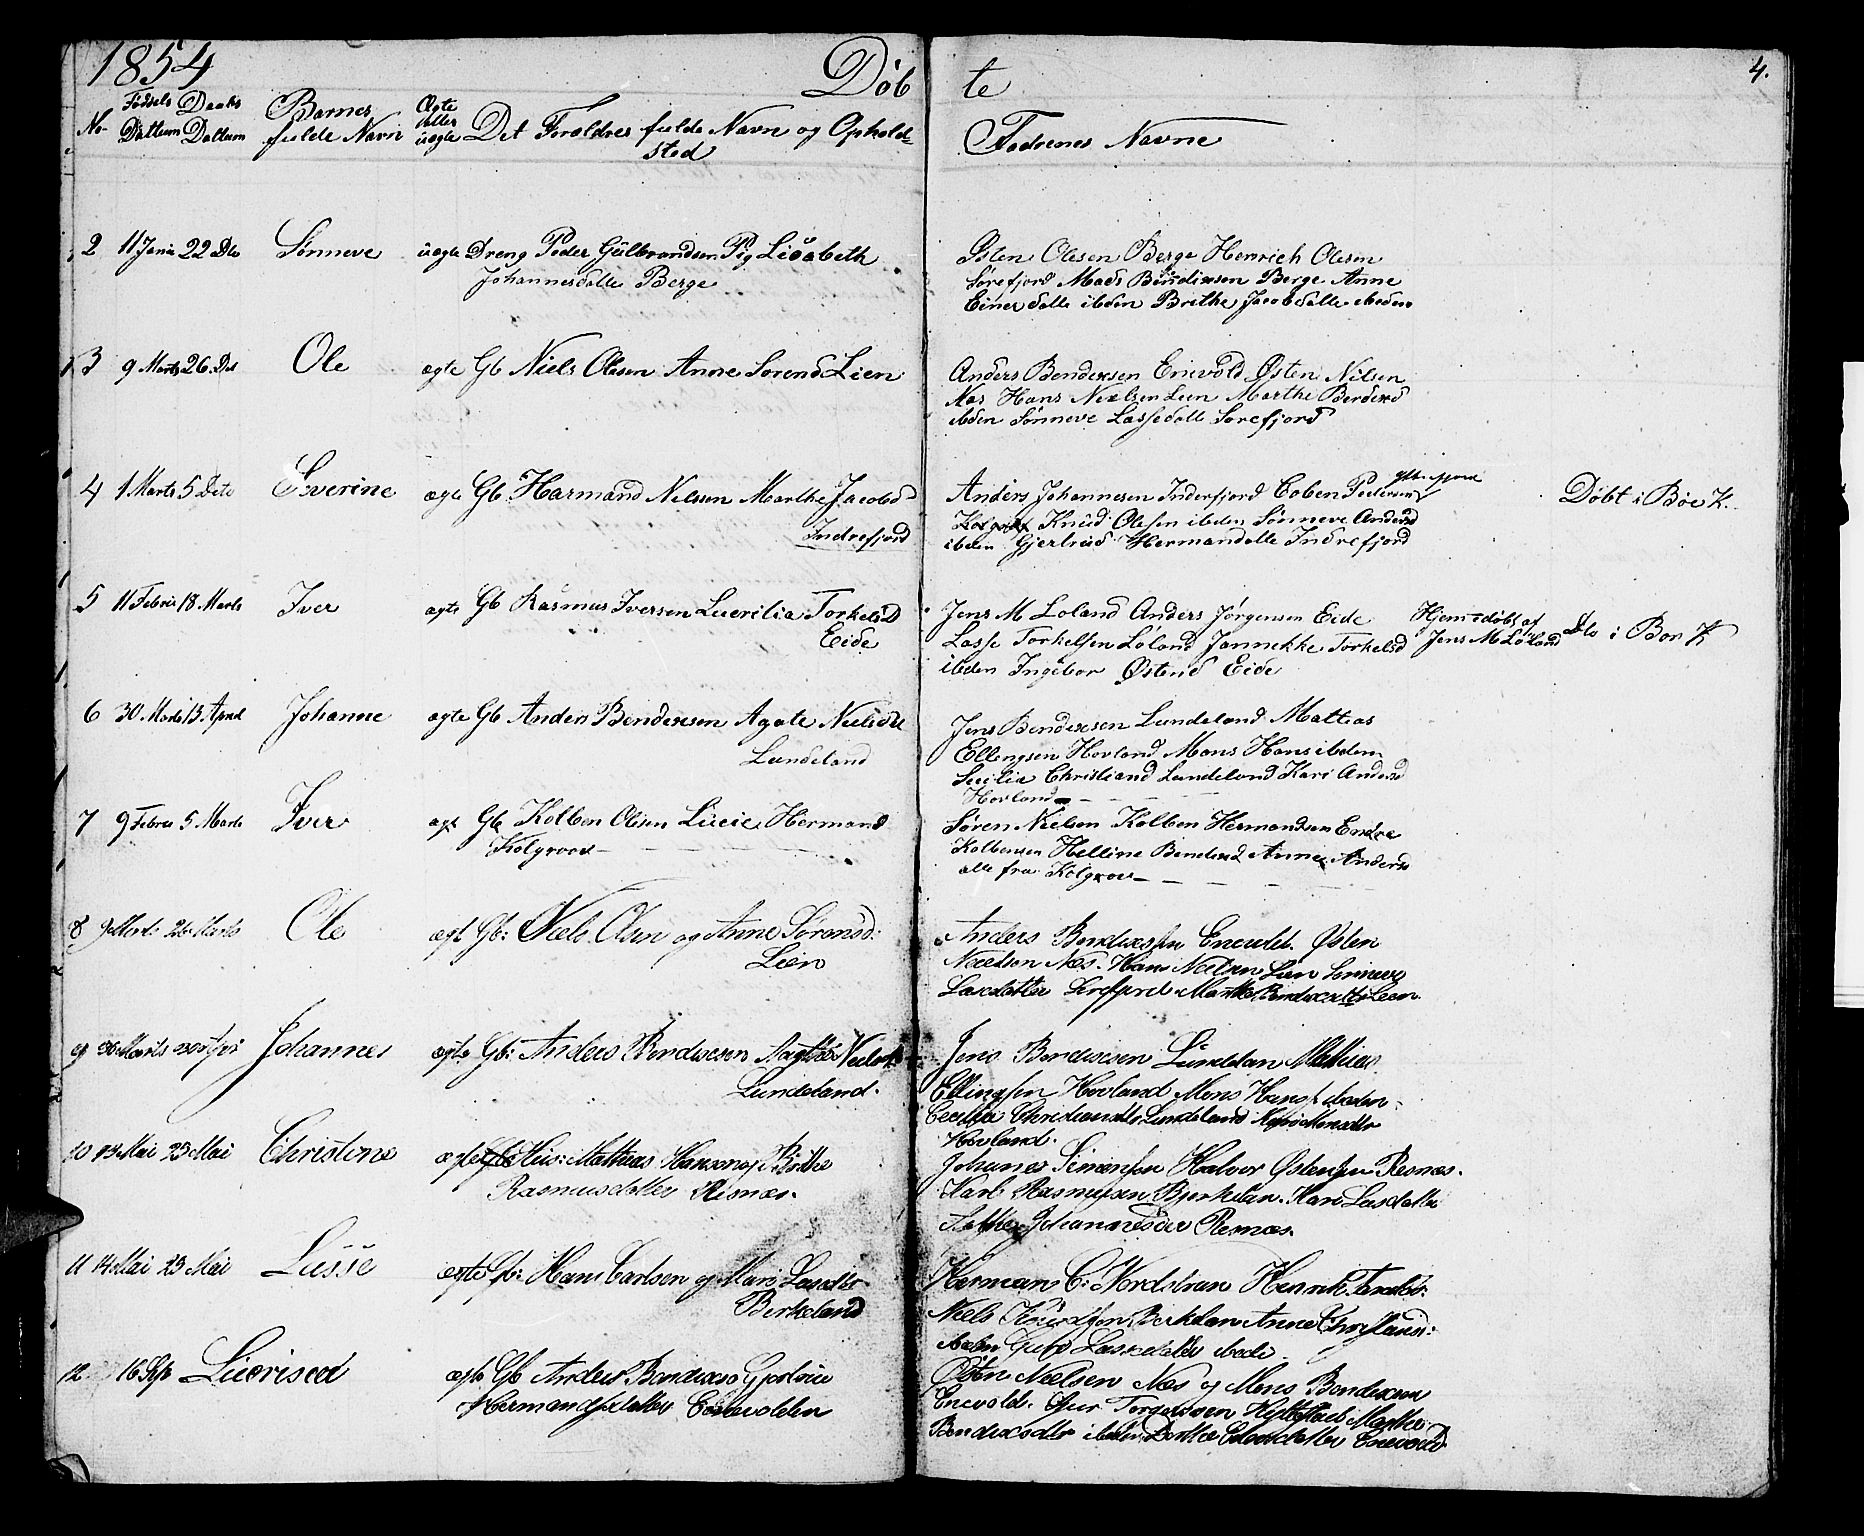 1854
Døb
te
4.
No
Fødsels Dattum
Daabs Dattum
Barnes fulde Navn
Ægte eller uægte
Det Forældres fulde Navn og Ophold=
sted
Fadrenes Navne
2 11 Janu 22 Dto Sønneve uægte Dreng Peder Gulbrandsen Pig Lisabeth
Johannesdatte Berge
Østen Olesen Berge Henrich Olesen
Sørefjord Mads Bendixsen Berge Anne
Einersdatte ibden Brithe Jacobsdatte ibeden
3 9 Marts 26 Dto Ole ægte Gb Niels Olesen Anne Sørensd Lien
Anders Bendexsen Enevold Østen Nilsen
Nas Hans Nielsen Lien Marthe Bendexsd
ibden Sønneve Lassedatte Sørefjord
4 1 Marts 5 Deto Severine ægte Gb Harmand Nilssen Marthe Jacobsd
Indrefjord
Anders Johannesen Inderfjord Coben Pedersen
Knud Olesen ibeden Sønneve Andersd
ibeden Gjertrud Hermandatte Indrefjord
Døbt i Bøe K.
5 11 Febrii 18 Marts Iver ægte Gb Rasmus Iversen Lucrilia Torkelsd
Eide
Jens M Loland Anders Jørgensen Eide
Lasse Torkelsen Loland Jannekke Torkelsd
ibden Ingebor Østensd Eide
Hjemedøbt af
Jens M Loland
Dto i Boe K
6 30 Marts 13 April Johanne ægte Gb Anders Bendexsen Agate Nielsdtt
Lundeland
Jens Bendexsen Lundeland Mattias
Ellengsen Hovland Mons Hans ibden
Sicilia Christiansd Lundeland Kari Andersd
Hovland
7 9 Febru 5 Marts Iver ægt Gb Kolben Olsen Lucie Hermansd
Kolgrov
Søren Nielsen Kolben Hermandsen Endre
Kolbensen Helline Bendexsd Anne Andersd
alle fra Kolgrov
8 9 Marts 26 Marts Ole ægt Gb: Niels Olsen og Anne Sørensd:
Lien
Anders Bendixsen Enevold. Østen
Neelson Næs. Hans Neelsen Lien Sønneve
Lasedatter Sørefjord Marthe Bendixdttr Leen.
9 30 Marts Johannes ægte Gb: Anders Bendixsen Agthe
Lundeland.
Jens Bendixsen Lundelan Mathias
Ellingsen Hovland Mons Hans ibeden
Cecilia Christiansdtr Lundeland Kari Monsdtr
Hovland.
10 Mai 25 Mai Christone ægte Hus: Mathias Hanson og Brithe
Rasmusdatter Risnæs.
Johanes Simonsen Halvor Østensen Resnæs.
Karl Rasmussen Byrkelan. Kari Lasdatter
Johannesdtr Resnæs.
11 14 Mai 25 Mai Lasse ægte Gb: Hans Carlsen og Mari Lasdtr
Birkeland
Herman C: Nordstran Henrik
Niels Knudsen Birkelan Anne Christiansd:
ibden Guri Lassedatter ibede
12. 16 Sep Lucrised ægte Gb Anders Bendixsen Gjertrue
Hermandsdatter Enevolden
Østen Neelsen Næs og Mons Bendixsen
Enevold. Torgersen Marthe
Bendixsdtr ibeden Berthe datter Enevold